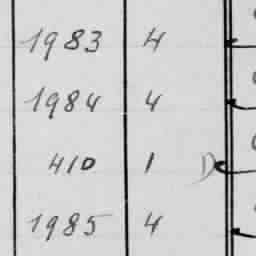 1983 4
1984 4
410 1
1985 4